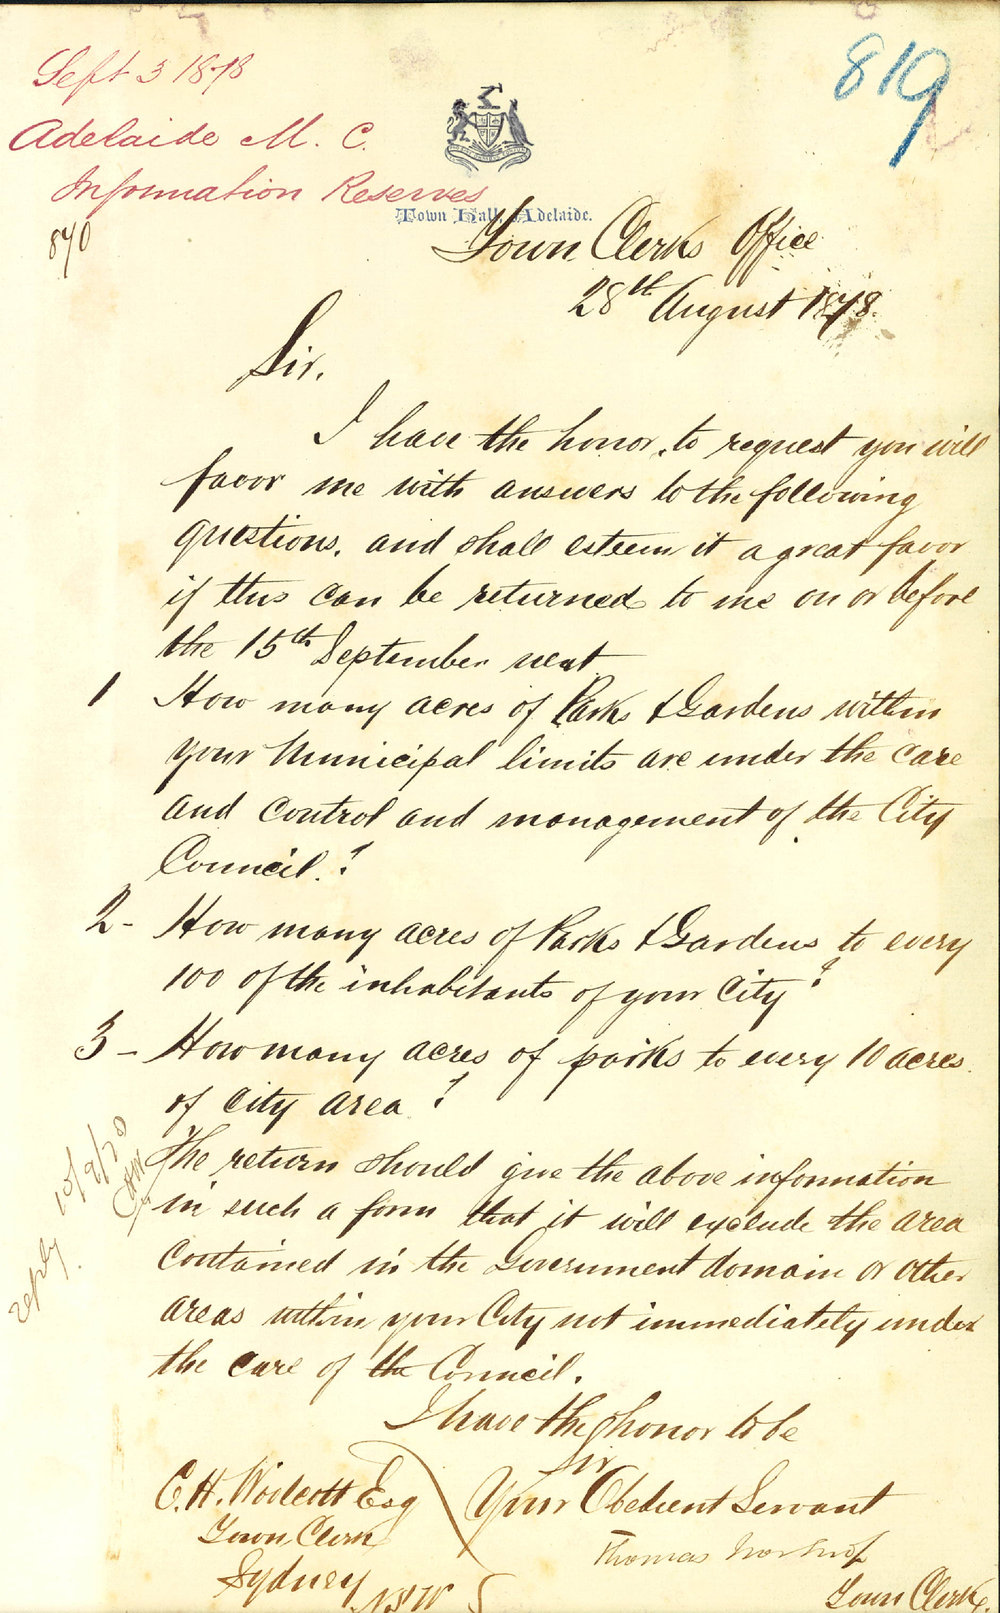 Sept 3 1878
819
Adelaide M. C.
Information Reserves
Town Hall, Adelaide.
870
Town Clerks Office
28th August 1878.
Sir.
I have the honor, to request you will
favor me with answers to the following
questions, and shall esteem it a great favor
if this can be returned to me on or before
the 15th September next
1 How many acres of Parks & Gardens within
your Municipal limits are under the care
and control and management of the City
Council.?
2- How many acres of Parks & Gardens to every
100 of the inhabitants of your City?
3 - How many acres of parks to every 10 acres
of City area?
The return should give the above information
in such a form that it will exclude the area
contained in the Government domain or other
areas within your City not immediately under
the care of the Council.
reply. 10/9/78
CHW
I have the honor to be
Sir
Your Obedient Servant
Thomas Worsnop
Town Clerk.
C. H. Woolcott Esq
Town Clerk
Sydney
NSW